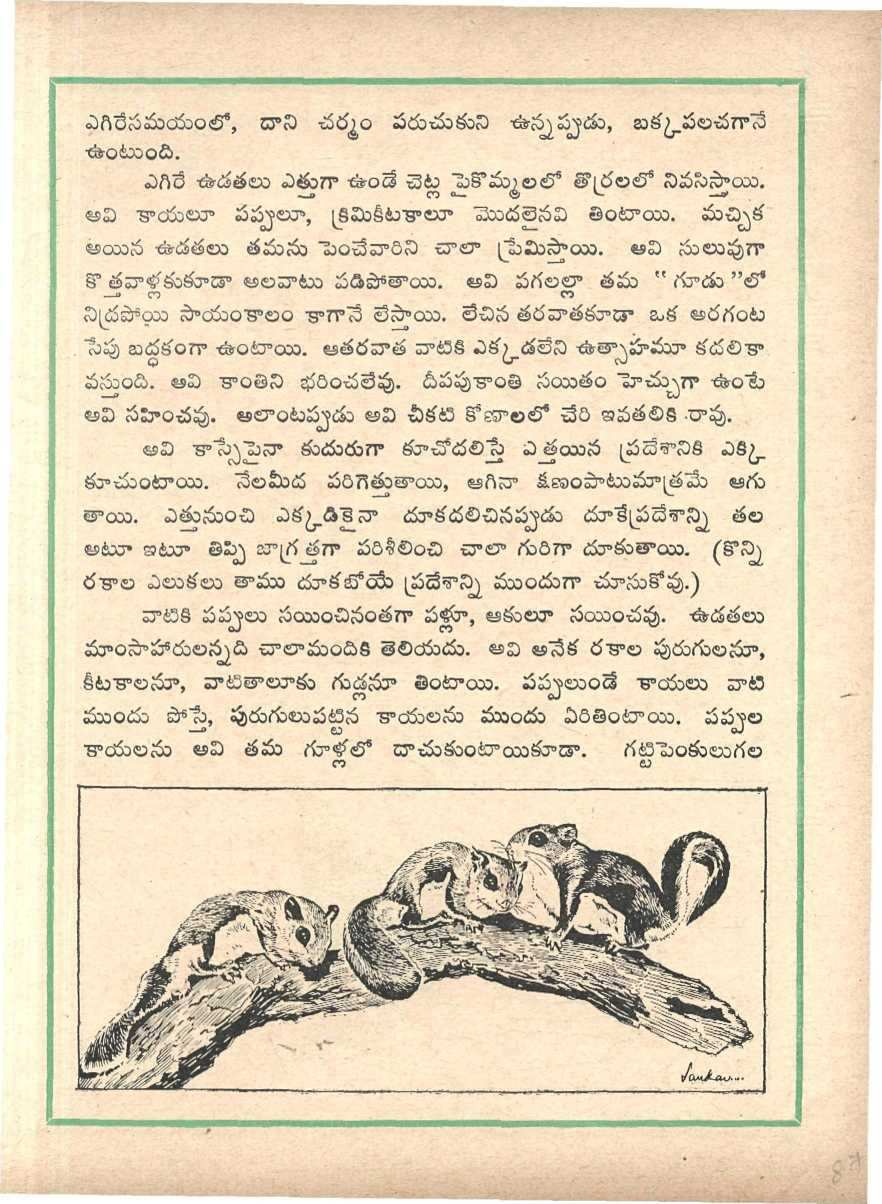 ఎగిరేసమయంలో, దాని చర్మం పరుచుకుని ఉన్నప్పుడు, బక్కపలచగానే
ఉంటుంది.
ఎగిరే ఉడతలు ఎత్తుగా ఉండే చెట్ల పైకొమ్మలలో తొర్రలలో నివసిస్తాయి.
అవి కాయలూ పప్పులూ, క్రిమికీటకాలూ మొదలైనవి తింటాయి. మచ్చిక
అయిన ఉడతలు తమను పెంచేవారిని చాలా ప్రేమిస్తాయి. అవి సులువుగా
కొత్తవాళ్లకుకూడా అలవాటు పడిపోతాయి. అవి పగలల్లా తమ “గూడు”లో
నిద్రపోయి సాయంకాలం కాగానే లేస్తాయి. లేచిన తరవాతకూడా ఒక అరగంట
సేపు బద్ధకంగా ఉంటాయి. ఆతరవాత వాటికి ఎక్కడలేని ఉత్సాహమూ కదలికా
వస్తుంది. అవి కాంతిని భరించలేవు. దీపపుకాంతి సయితం హెచ్చుగా ఉంటే
అవి సహించవు. అలాంటప్పుడు అవి చీకటి కోణాలలో చేరి ఇవతలికి రావు.
అవి కాస్సేపైనా కుదురుగా కూచోదలిస్తే ఎత్తయిన ప్రదేశానికి ఎక్కి
కూచుంటాయి. నేలమీద పరిగెత్తుతాయి, ఆగినా క్షణంపాటుమాత్రమే ఆగు
తాయి. ఎత్తునుంచి ఎక్కడికైనా దూకదలిచినప్పుడు దూకేప్రదేశాన్ని తల
అటూ ఇటూ తిప్పి జాగ్రత్తగా పరిశీలించి చాలా గురిగా దూకుతాయి. (కొన్ని
రకాల ఎలుకలు తాము దూకబోయే ప్రదేశాన్ని ముందుగా చూసుకోవు.)
వాటికి పప్పులు సయించినంతగా పళ్లూ, ఆకులూ సయించవు. ఉడతలు
మాంసాహారులన్నది చాలామందికి తెలియదు. అవి అనేక రకాల పురుగులనూ,
కీటకాలనూ, వాటితాలూకు గుడ్లనూ తింటాయి. పప్పులుండే కాయలు వాటి
ముందు పోస్తే, పురుగులుపట్టిన కాయలను ముందు ఏరితింటాయి. పప్పుల
కాయలను అవి తమ గూళ్లలో దాచుకుంటాయికూడా. గట్టిపెంకులుగల
Sankar...
87